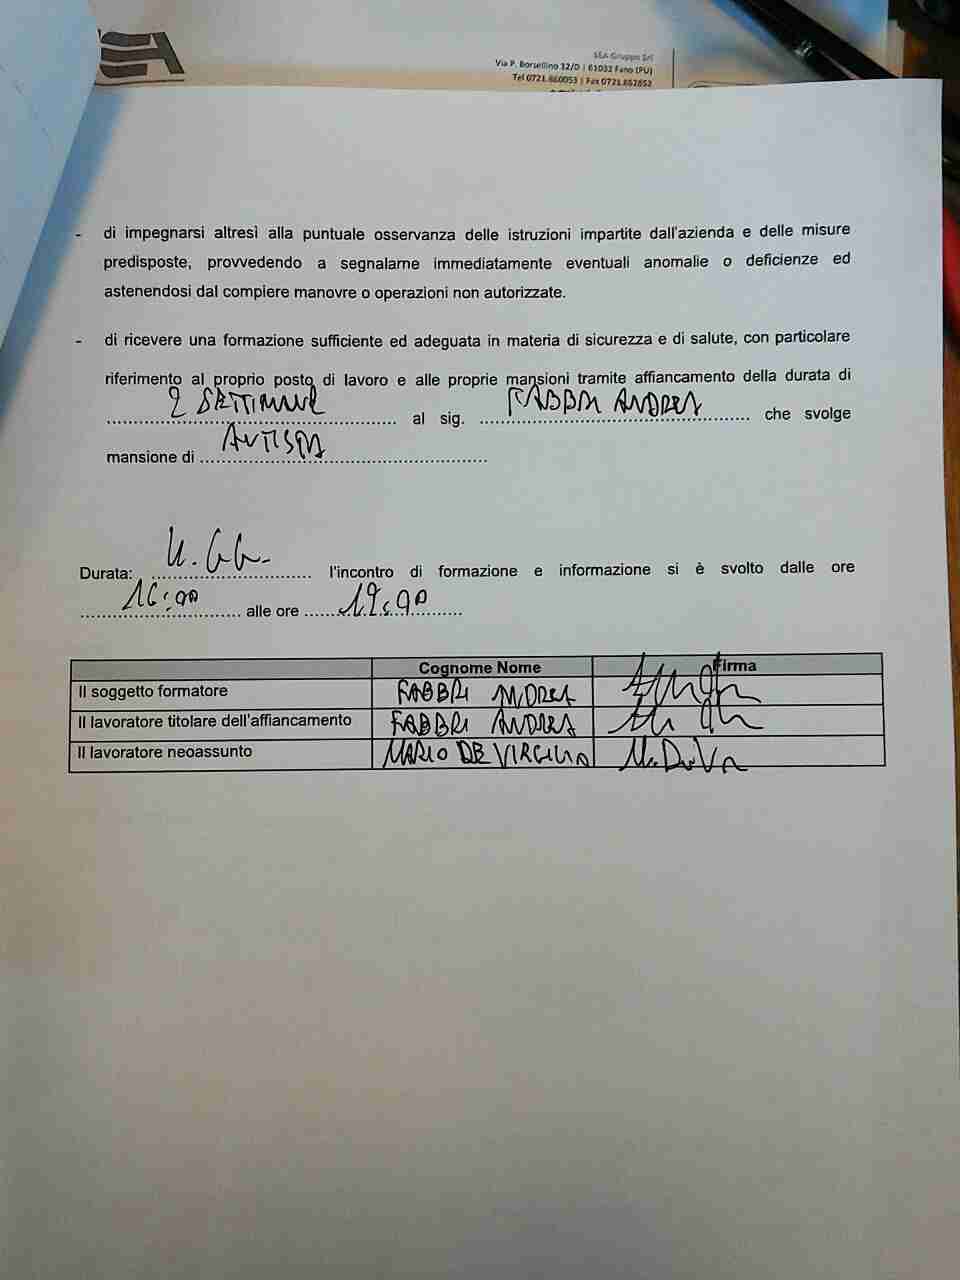 SEA Gruppo Srl
Via P. Borsellino 32/D | 61032 Fano (PU)
Tel 0721.860053 | Fax 0721.862652
- di impegnarsi altresì alla puntuale osservanza delle istruzioni impartite dall'azienda e delle misure
predisposte, provvedendo a segnalarne immediatamente eventuali anomalie o deficienze ed
astenendosi dal compiere manovre o operazioni non autorizzate.
- di ricevere una formazione sufficiente ed adeguata in materia di sicurezza e di salute, con particolare
riferimento al proprio posto di lavoro e alle proprie mansioni tramite affiancamento della durata di
2 SETTIMANE al sig. FABBRI ANDREA che svolge
mansione di AUTISTA
Durata: l'incontro di formazione e informazione si è svolto dalle ore
16:00 alle ore
Cognome Nome Firma
Il soggetto formatore FABBRI ANDREA
Il lavoratore titolare dell'affiancamento FABBRI ANDREA
Il lavoratore neoassunto MARIO DE VIRGILIO